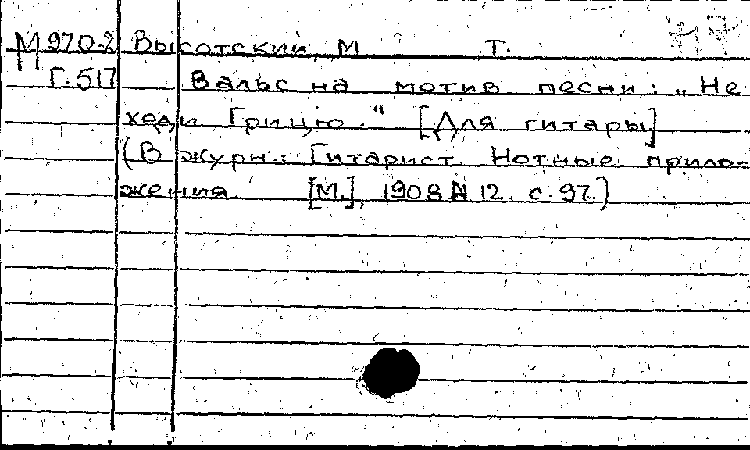 М 970-2 Высотский, М. Т.
Г-517 Вальс на мотив песни: „Не
ходи Грицю." [Для гитары]
(В журн.: Гитарист. Нотные прило-
жения. [М.], 1908 № 12. с. 97.)